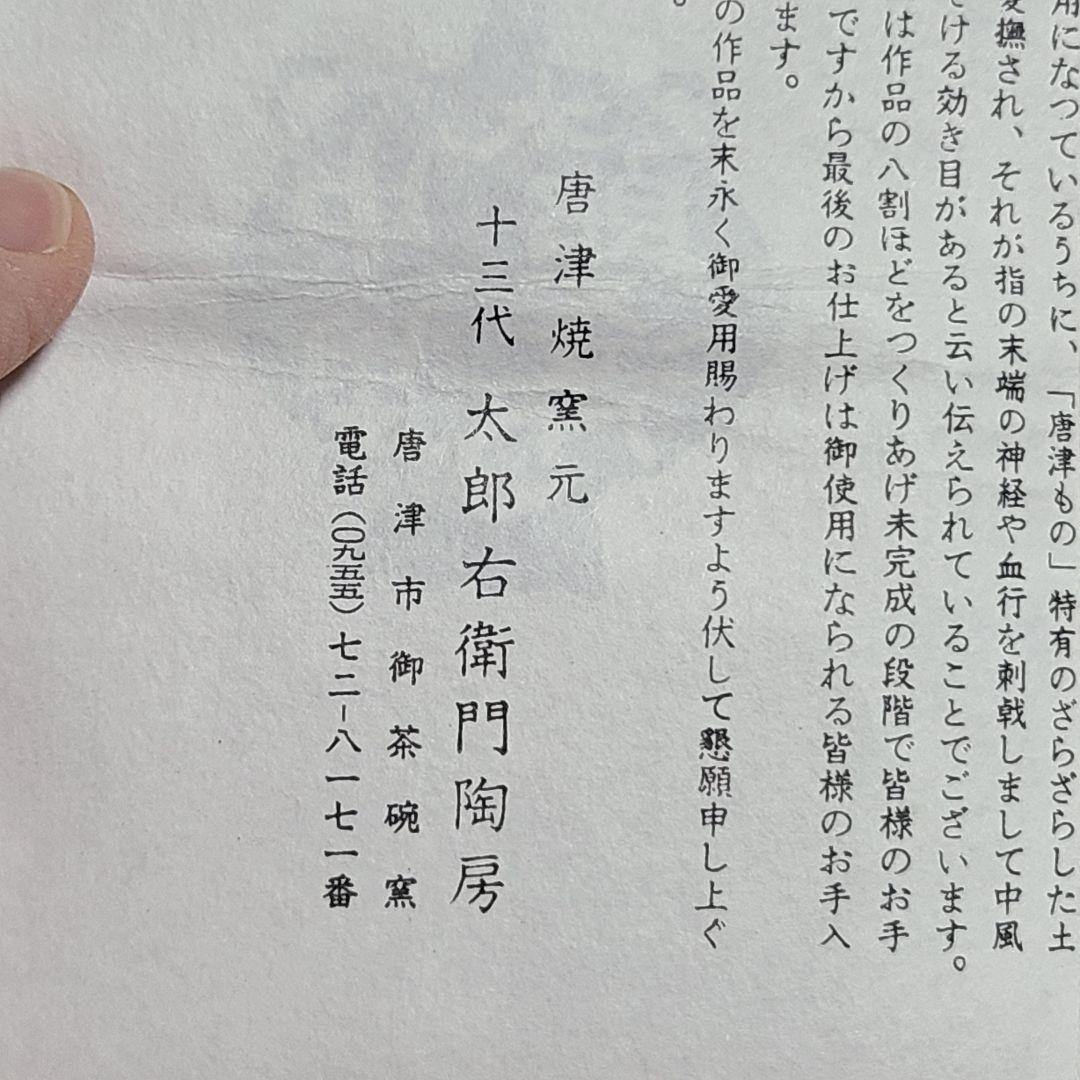 用になつているうちに、「唐津もの」特有のざらざらした土
愛撫され、それが指の末端の神経や血行を刺戟しまして中風
ける効き目があると云い伝えられていることでございます。
は作品の八割ほどをつくりあげ未完成の段階で皆様のお手
ですから最後のお仕上げは御使用になられる皆様のお手入
ます。
の作品を末永く御愛用賜わりますよう伏して懇願申し上ぐ
。
唐津焼窯元
十三代 太郎右衛門陶房
唐津市御茶碗窯
電話(〇九五五)七二-八一七一番